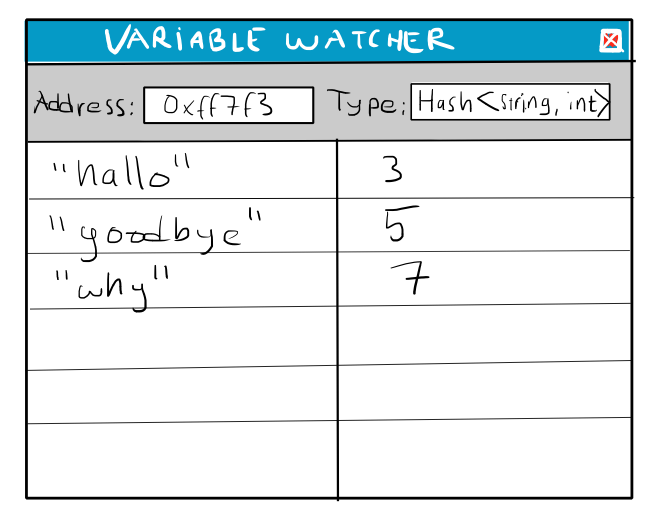 VARIABLE WATCHER
Address: 0xff7f3 Type: Hash<string, int>
"hallo" 3
"goodbye" 5
"why" 7